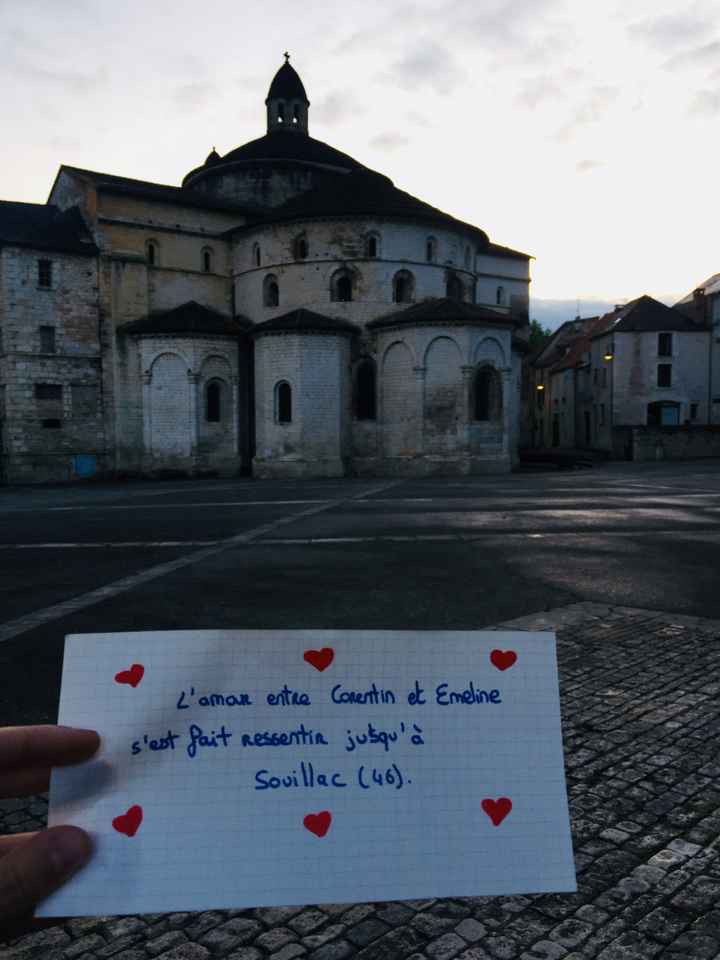 L'amour entre Corentin et Emeline
s'est fait ressentir jusqu'à
Souillac (46).